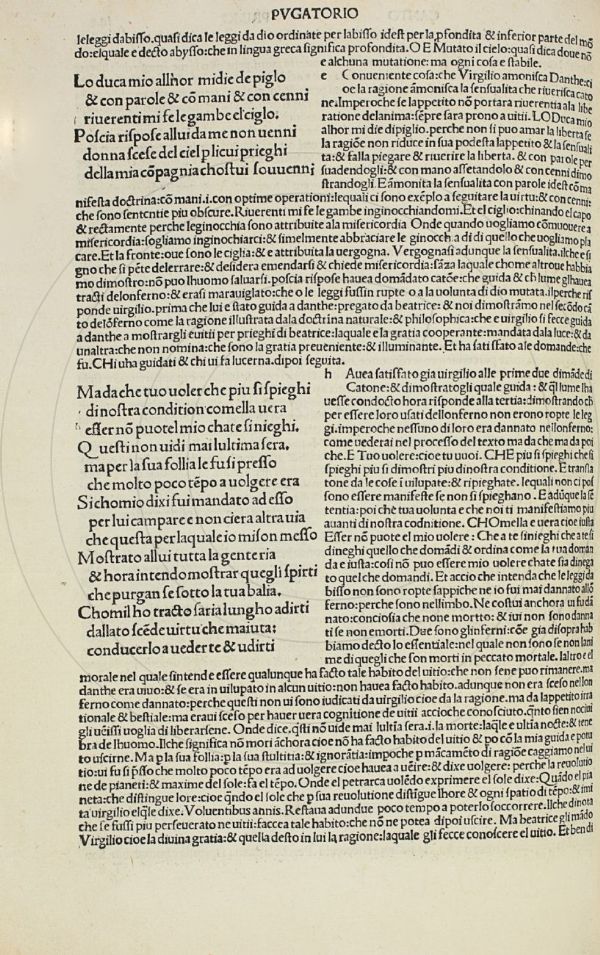 PVGATORIO
le leggi dabisso. quasi dica le leggi da dio ordinate per labisso idest per la pfondita & inferior parte del mō
do: elquale e decto abysso: che in lingua greca significa profondita. O E Mutato il cielo: quasi dica doue nō
e alchuna mutatione: ma ogni cosa e stabile.
Lo duca mio allhor mi die di piglo
& con parole & cō mani & con cenni
riuerenti mi fe le gambe el ciglo.
Poscia rispose allui da me non uenni
donna scese del ciel p li cui prieghi
della mia cōpagnia chostui souuenni
e Conueniente cosa: che Virgilio amonisca Danthe: ci
oe la ragione āmonisca la sensualita che riuerisca cato
ne. Imperoche se lappetito nō portara riuerentia ala libe
ratione delanima: sēpre sara prono a uitii. LO Duca mio
alhor mi die di piglio. perche non si puo amar la liberta se
la ragiōe non riduce in sua podesta lappetito & la sensuali
ta: & falla piegare & riuerire la liberta. & con parole per
suadendogli: & con mano assetandolo & con cenni dimo
strandogli. E āmonita la sensualita con parole idest cō ma
nifesta doctrina: cō mani. i. con optime operationi: lequali ci sono exēplo a seguitare la uirtu: & con cenni:
che sono sententie piu obscure. Riuerenti mi fe le gambe inginocchiandomi. Et el ciglio: chinando el capo
& rectamente perche le ginocchia sono attribuite ala misericordia Onde quando uogliamo cōmouere a
misericordia: sogliamo inginochiarci: & simelmente abbraciare le ginocchia di di quello che uogliamo pla
care. Et la fronte: oue sono le ciglia: & e attribuita la uergogna. Vergognasi adunque la sensualita. ilche e si
gno che si pēte delerrare: & desidera emendarsi & chiede misericordia: sāza laquale chome altroue habbia
mo dimostro: nō puo lhuomo saluarsi. poscia rispose hauea domādato catōe: che guida & ch lume gli hauea
tracti delonferno: & erasi marauiglato: che o le leggi fussin rupte o a la uolunta di dio mutata. ilperche ris
ponde uirgilio. prima che lui e stato guida a danthe: pregato da beatrice: & noi dimostrāmo nel secōdo cā
to delōferno come la ragione illustrata dala doctrina naturale: & philosophica: che e uirgilio si fecce guida
a danthe a mostrargli euitii per prieghi di beatrice: laquale e la gratia cooperante: mandata dala luce: & da
unaltra: che non nomina: che sono la gratia preuenieute: & illuminante. Et ha satisfato ale domande: che
fu. CHi ui ha guidati & chi ui fa lucerna. dipoi seguita.
Ma da che tuo uoler che piu si spieghi
di nostra condition comella uera
esser nō puote'l mio cha te si nieghi.
Questi non uidi mai lultima sera,
ma per la sua follia le fu si presso
che molto poco tēpo a uolgere era
Si chomio dixi fui mandato ad esso
per lui campare e non ciera altra uia
che questa per laquale io mi son messo
Mostrato allui tutta la gente ria
& hora intendo mostrar quegli spirti
che purgan se sotto la tua balia.
Cho mil ho tracto saria lungho a dirti
dallato scēde uirtu che maiuta:
conducerlo a uederte & udirti
h Auea satisfato gia uirgilio alle prime due dimāde di
Catone: & dimostratogli quale guida: & q̄l lume lha
uesse condocto hora risponde alla tertia: dimostrando ch
per essere loro usati dellonferno non erono ropte le leg
gi. imperoche nessuno di loro era dannato nellonferno:
come uederai nel processo del texto ma da che ma da poi
che. E Tuo uolere: cioe tu uuoi. CHE piu si spieghi che si
spieghi piu si dimostri piu di nostra conditione. E transla
tone da le cose ī uilupate: & ripieghate. lequali non ci pos
sono essere manifeste se non si spieghano. E adūque la sē
tentia: poi che tua uolunta e che noi ti manifestiamo piu
auanti di nostra codnitione. CHOmella e uera cioe iusta
ESser nō puote el mio uolere: Che a te si nieghi che a te si
dineghi quello che domādi & ordina come la tua doman
da e iusta: cosi nō puo essere mio uolere chate sia dinega
to quel che domandi. Et accio che intenda che le leggi da
bisso non sono ropte sappiche ne io fui mai dannato allō
ferno: perche sono nellimbo. Ne costui anchora ui fu dā
nato: conciosia che none mortto: & iui non sono danna
ti se non emorti. Due sono glinferni: cōe gia disopra hab
biamo decto lo essentiale: nel quale non sono se non lani
me di quegli che son morti in peccato mortale. laltro e el
morale nel quale sintende essere qualunque ha facto tale habito del uitio: che non sene puo rimanere. ma
danthe era uiuo: & se era in uilupato in alcun uitio: non hauea facto habito. adunque non era sceso nellon
ferno come dannato: perche questi non ui sono iudicati da uirgilio cioe da la ragione. ma da lappetito irra
tionale & bestiale: ma eraui sceso per hauer uera cognitione de uitii accioche conosciuto. quāto sien nociui
gli uēissi uoglia di liberarsene. Onde dice. q̄sti nō uide mai lultīa sera. i. la morte: laqle e ultīa nocte: & tene
bra de lhuomo. Ilche significa nō mori āchora cioe nō ha facto habito del uitio & po cō la mia guida e potu
to uscirne. Ma p la sua follia: p la sua stultitia: & ignorātia: impoche p mācamēto di ragiōe caggiamo nel ui
tio: ui fu si p̄sso che molto poco tēpo era ad uolgere cioe hauea a uēire: & dixe uolgere: perche la reuolutio
ne de pianeti: & maxime del sole: fa el tēpo. Onde el petrarca uolēdo exprimere el sole dixe: Quādo el pia
neta: che distingue lore: cioe quādo el sole che p sua reuolutione distīgue lhore & ogni spatio di tēpo: & imi
ta uirgilio elq̄le dixe. Voluentibus annis. Restaua adundue poco tempo a poterlo soccorrere. Ilche dinota
che se fussi piu perseuerato ne uitii: faccea tale habito: che nō ne potea dipoi uscire. Ma beatrice gli mādo
Virgilio cioe la diuina gratia: & quella desto in lui la ragione: laquale gli fecce conoscere el uitio. Et ben di